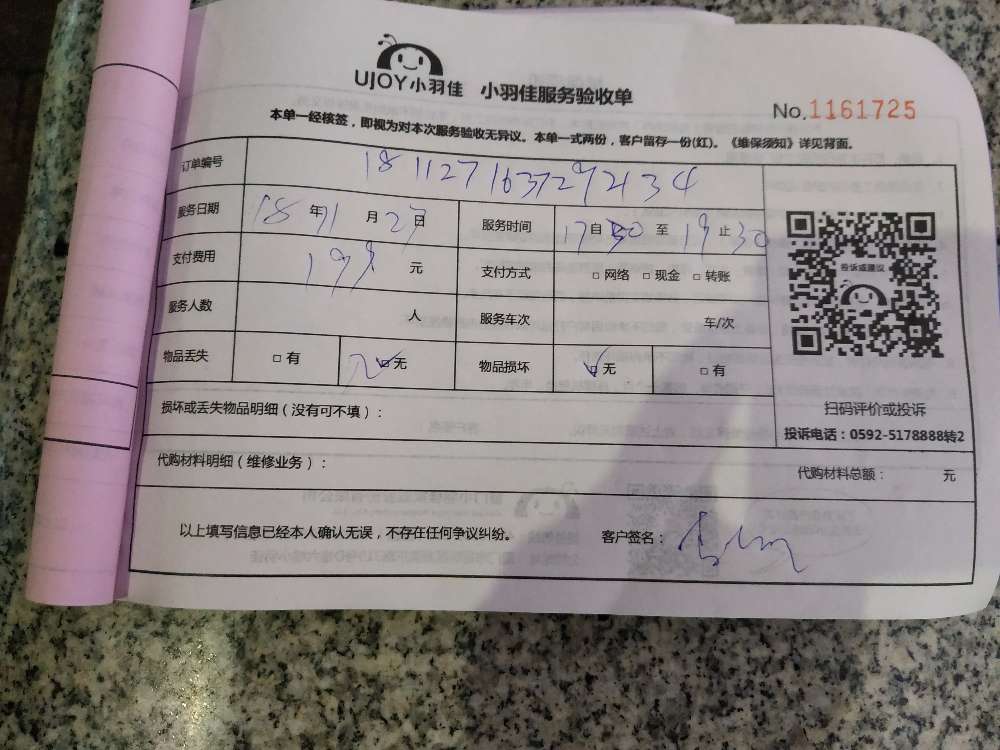 UJOY小羽佳 小羽佳服务验收单
No.1161725
本单一经核签，即视为对本次服务验收无异议。本单一式两份，客户留存一份(红)。《维保须知》详见背面。
订单编号 1811271637292134
服务日期 18年11月27日 服务时间 17自30至19止30
支付费用 199元 支付方式 □网络 □现金 □转账
服务人数 人 服务车次 车/次
物品丢失 □有 □无 物品损坏 □无 □有
投诉或建议
扫码评价或投诉
投诉电话：0592-5178888转2
损坏或丢失物品明细（没有可不填）：
代购材料明细（维修业务）： 代购材料总额： 元
以上填写信息已经本人确认无误，不存在任何争议纠纷。 客户签名：